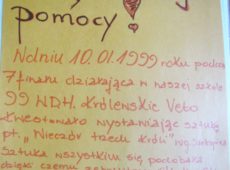 pomocy!
W dniu 10.01.1999 roku podczas
7 finału działająca w naszej szkole
99 NDH. Królewskie Veto
kwestowało wystawiając sztukę
pt. "Wieczór trzech króli"
sztuka wszystkim się podobała
dzięki czemu